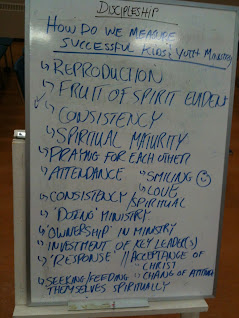 DISCIPLESHIP
HOW DO WE MEASURE
SUCCESSFUL KIDS/YUTH MINISTRY
↳ REPRODUCTION
↳ FRUIT OF SPIRIT EVIDENT
↳ CONSISTENCY
↳ SPIRITUAL MATURITY
↳ PRAYING FOR EACH OTHER
↳ ATTENDANCE ↳ SMILING ☺
↳ LOVE
↳ CONSISTENCY/SPIRITUAL
↳ "DOING" MINISTRY
↳ "OWNERSHIP" IN MINISTRY
↳ INVESTMENT OF KEY LEADER(S)
↳ "RESPONSE" // ACCEPTANCE OF CHRIST
↳ SEEKING/FEEDING ↳ CHANG OF
THEMSELVES SPIRITUALLY